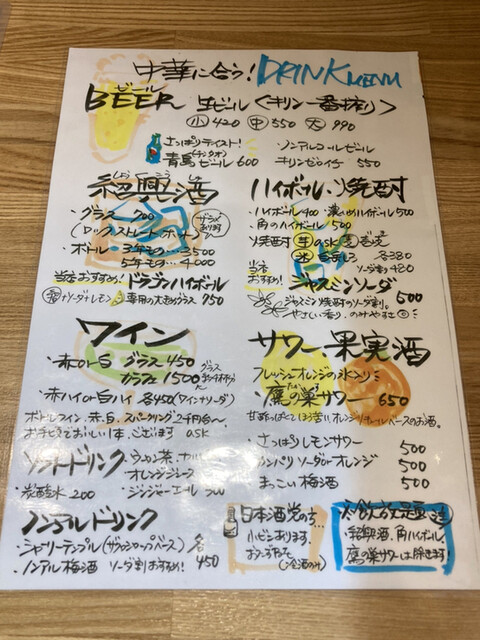 中華に合う! DRINK MENU
ビール
BEER 生ビール〈キリン一番搾り〉
小 420 中 550 大 990
さっぱりテイスト!
青島ビール 600
(チンタオ)
ノンアルコールビール
キリンゼロイチ 550
紹興酒
・グラス 700
(ロック、ストレート、ホット)
ザラメあります
・ボトル・3年もの…3500
5年もの…4000
当店おすすめ! ドラゴンハイボール
ソーダ+レモン 専用の大きめグラス 750
ハイボール、焼酎
・ハイボール400 ・濃いめハイボール500
・角のハイボール 500
・焼酎 芋 ask 麦
米 白岳しろ 各380
ソーダ割 420
当店おすすめ ジャスミンソーダ
500
ジャスミン焼酎のソーダ割。
やさしい香り、のみやすさ◎
ワイン
・赤 or 白 グラス 450
カラフェ 1500
・赤ハイ or 白ハイ 各450(ワイン+ソーダ)
ボトルワイン、赤、白、スパークリング2千円台〜
お手頃でおいしい1本、ございます ask
サワー、果実酒
フレッシュオレンジの氷入り
鷹の巣サワー 650
甘酢っぱくてほろ苦いオレンジリキュールベースのお酒。
・さっぱりレモンサワー 500
・カンパリ ソーダ or オレンジ 500
・まっこい梅酒 500
ソフトドリンク
・ウーロン茶、
オレンジジュース
・炭酸水 200
・ジンジャーエール 300
ノンアルドリンク
・シャーリーテンプル(ザクロシロップベース) 各
・ノンアル梅酒 ソーダ割おすすめ! 450
日本酒党の方…
小ビンあります。
(冷酒のみ)
飲み放題
・紹興酒、角ハイボール、
鷹の巣サワーは除きます!